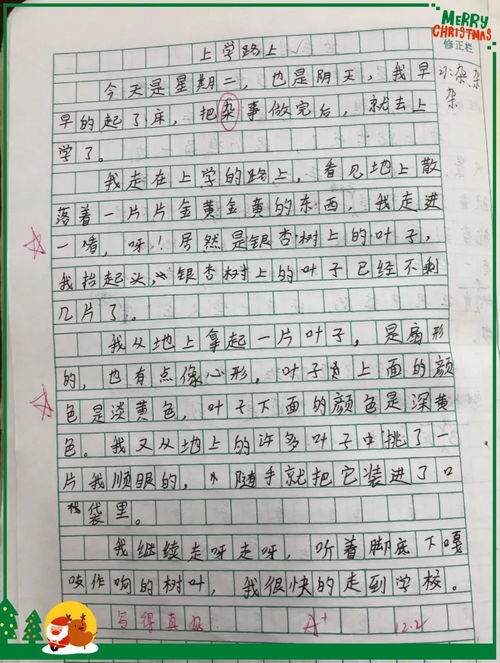 MERRY
CHRISTMAS
修正栏
上学路上
今天是星期二，也是阴天，我早
早的起了床，把杂事做完后，就去上
学了。
我走在上学的路上，看见地上散
落着一片片金黄金黄的东西，我走进
一瞧，呀！居然是银杏树上的叶子，
我抬起头，银杏树上的叶子已经不剩
几片了。
我从地上拿起一片叶子，是扇形
的，也有点像心形，叶子上面的颜
色是淡黄色，叶子下面的颜色是深黄
色。我又从地上的许多叶子中挑了一
片我顺眼的，随手就把它装进了口
袋里。
我继续走呀走呀，听着脚底下嘎
吱作响的树叶，我很快的走到学校。
杂杂
杂
写得真
A+
12.2